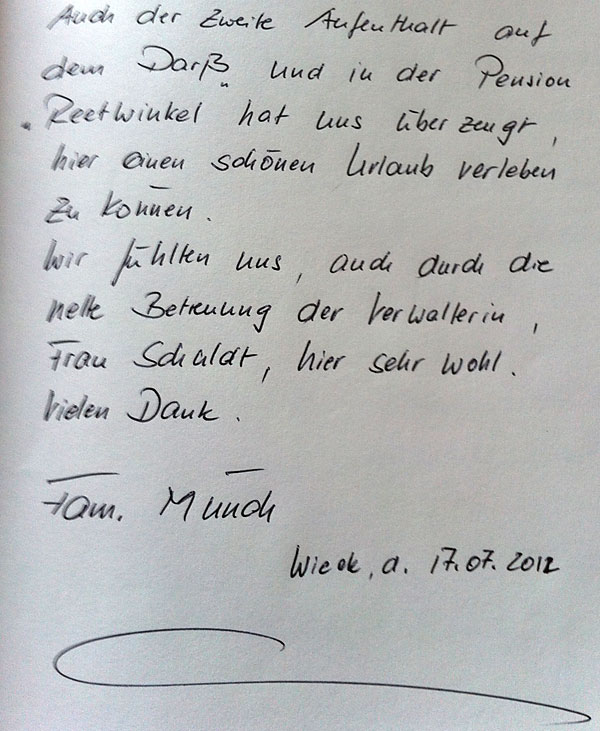 Auch der zweite Aufenthalt auf
dem Darß und in der Pension
"Reetwinkel" hat uns überzeugt,
hier einen schönen Urlaub verleben
zu können.
Wir fühlten uns, auch durch die
nette Betreuung der Verwalterin,
Frau Schuldt, hier sehr wohl.
Vielen Dank.
Fam. Münch
Wieck, d. 17.07.2012